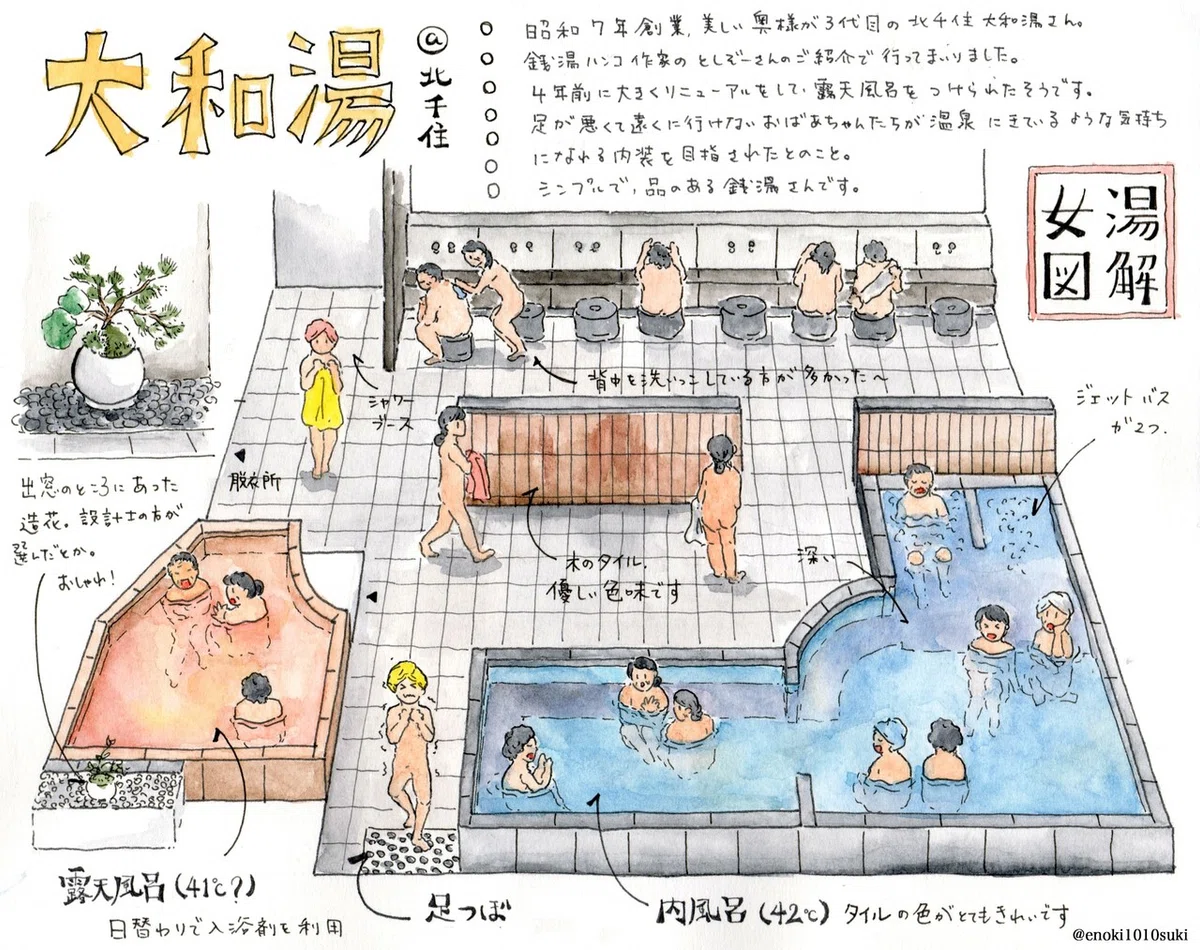 大和湯
@北千住
昭和7年創業、美しい奥様が3代目の北千住 大和湯さん。
銭湯ハンコ作家の としぞーさんのご紹介で行ってまいりました。
4年前に大きくリニューアルをして、露天風呂をつけられたそうです。
足が悪くて遠くに行けないおばあちゃんたちが温泉にきているような気持ち
になれる内装を目指されたとのこと。
シンプルで、品のある銭湯さんです。
女湯
図解
背中を洗いっこしている方が多かった〜
シャワー
ブース
ジェットバス
が2つ.
脱衣所
出窓のところにあった
造花。設計士の方が
選んだとか。
おしゃれ!
木のタイル.
優しい色味です
深い
露天風呂(41℃?)
日替わりで入浴剤を利用
足つぼ
内風呂(42℃)タイルの色がとてもきれいです
@enoki1010suki